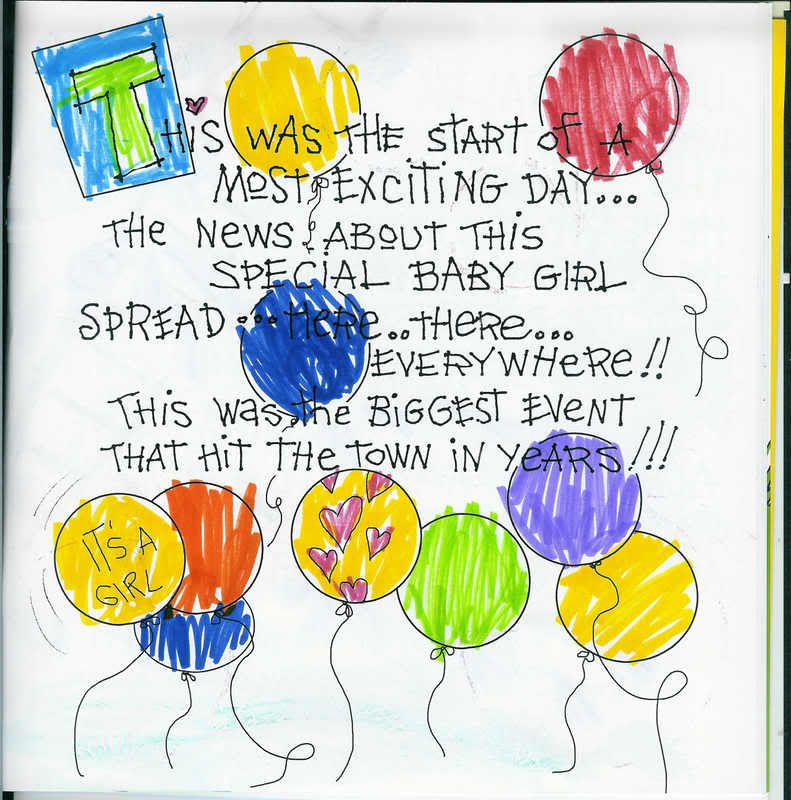 THiS WAS THE START Of A
MOST EXCITING DAY...
THE NEWS ABOUT THIS
SPECIAL BABY GIRL
SPREAD...HERE..THERE...
EVERYWHERE!!
THIS was the BIGGEST EVENT
THAT HIT THE TOWN IN YEARS!!!
IT'S A
GIRL